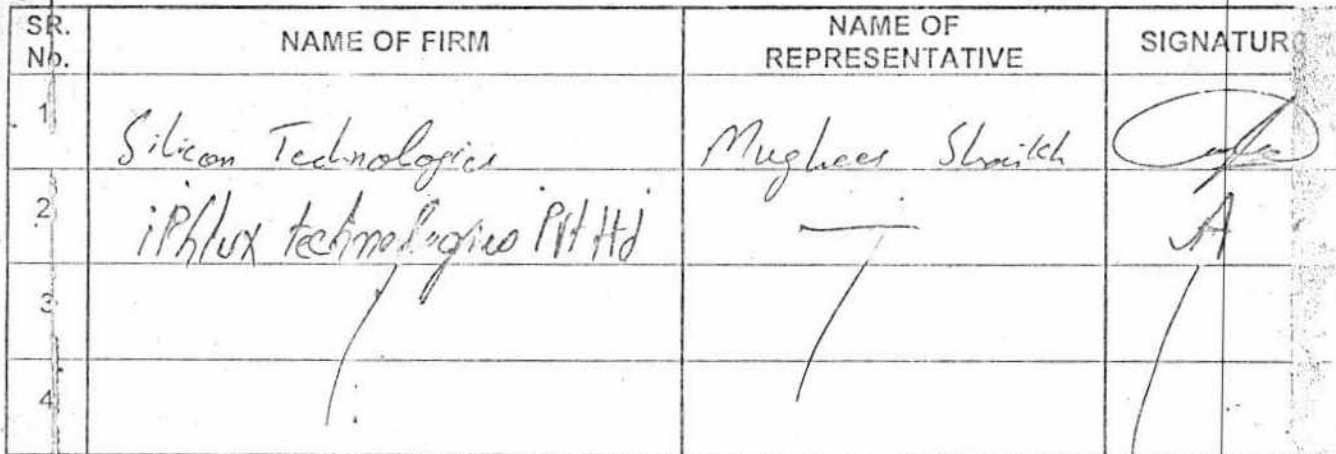 SR. No. NAME OF FIRM NAME OF REPRESENTATIVE SIGNATURE
1 Silicon Technologies Mughees Shaikh
2 iPhlux technologies Pvt Ltd —
3
4